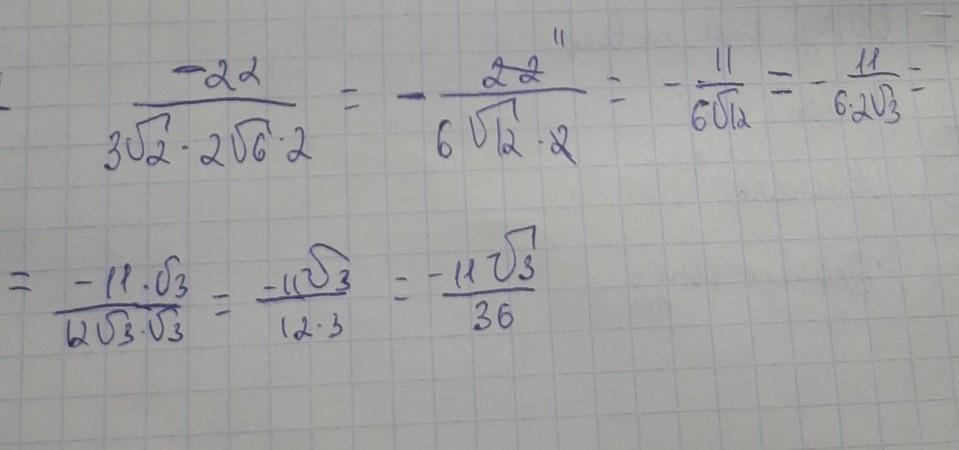 -22/(3√2·2√6·2) = -22/(6√12·2) 11 = -11/(6√12) = -11/(6·2√3) =
= -11·√3/(12√3·√3) = -11√3/(12·3) = -11√3/36